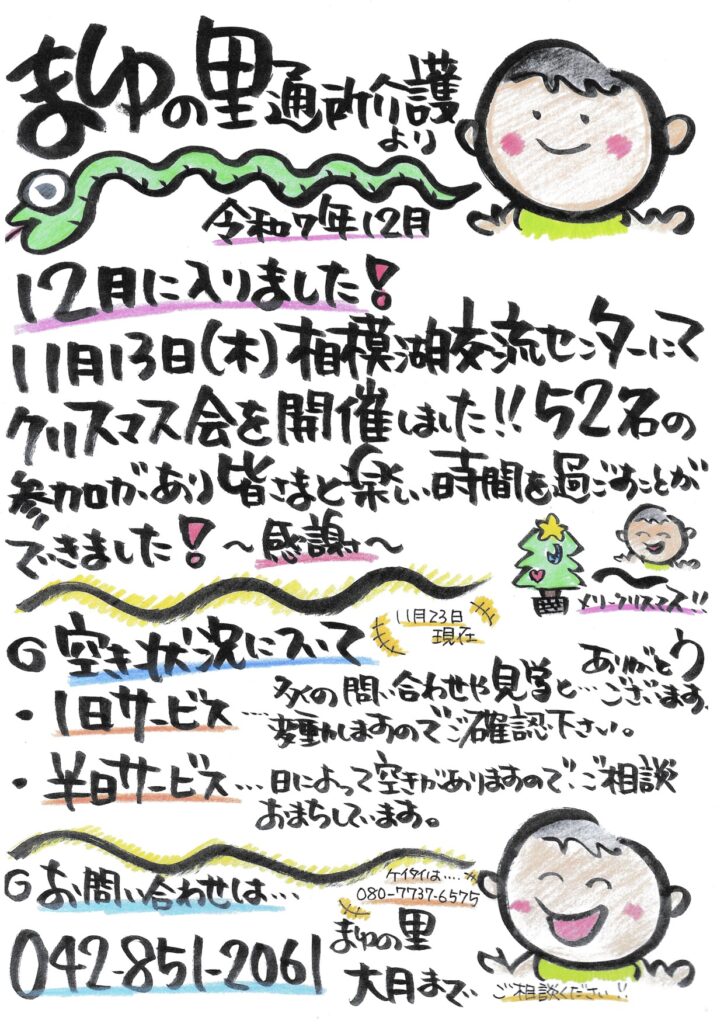 まゆの里通所介護
より
令和7年12月
12月に入りました!
11月13日(木)相模湖交流センターにて
クリスマス会を開催しました!!52名の
参加があり皆さまと楽しい時間を過ごすことが
できました!〜感謝〜
メリークリスマス!!
11月23日
現在
空き状況について
・1日サービス…多くの問い合わせや見学と…ありがとうございます
変動しますのでご確認下さい。
・半日サービス…日によって空きがありますので!ご相談
おまちしています。
お問い合わせは…
ケイタイは.....
080-7737-6575
042-851-2061
まゆの里
大月まで
ご相談ください!!